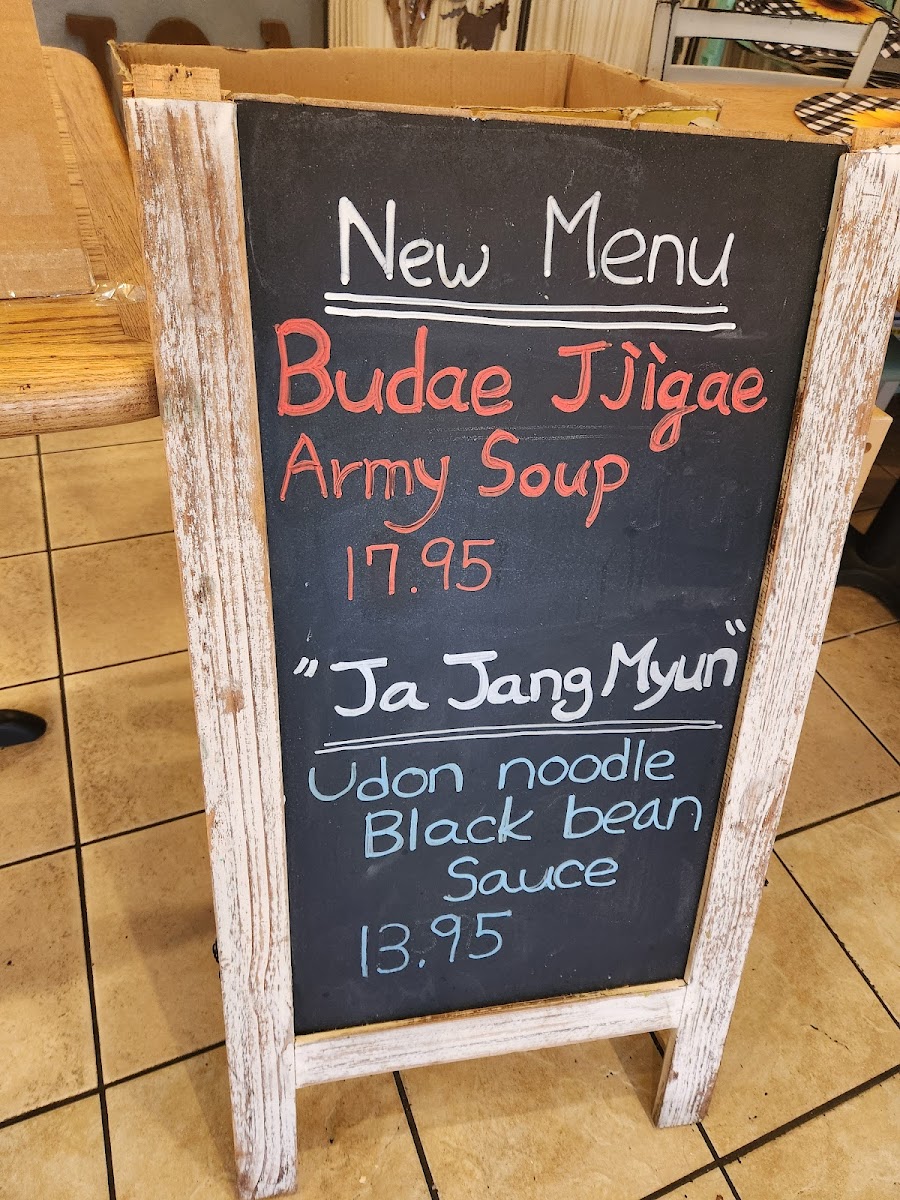 New Menu
Budae Jjigae
Army Soup
17.95
"Ja Jang Myun"
Udon noodle
Black bean
Sauce
13.95